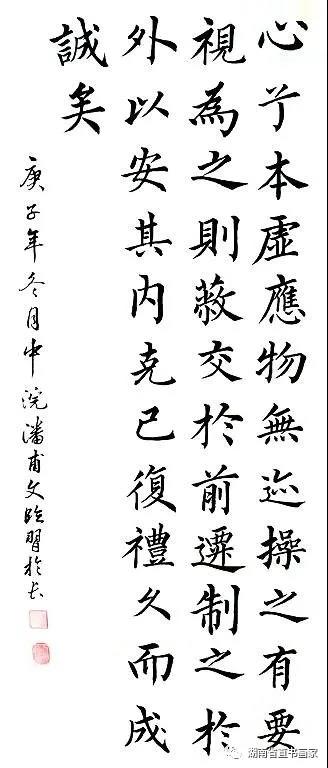 心兮本虛應物無迹操之有要
視為之則蔽交於前遷制之於
外以安其内克己復禮久而成
誠矣
庚子年冬月中浣潘甫文臨習於长
湖南省直书画家